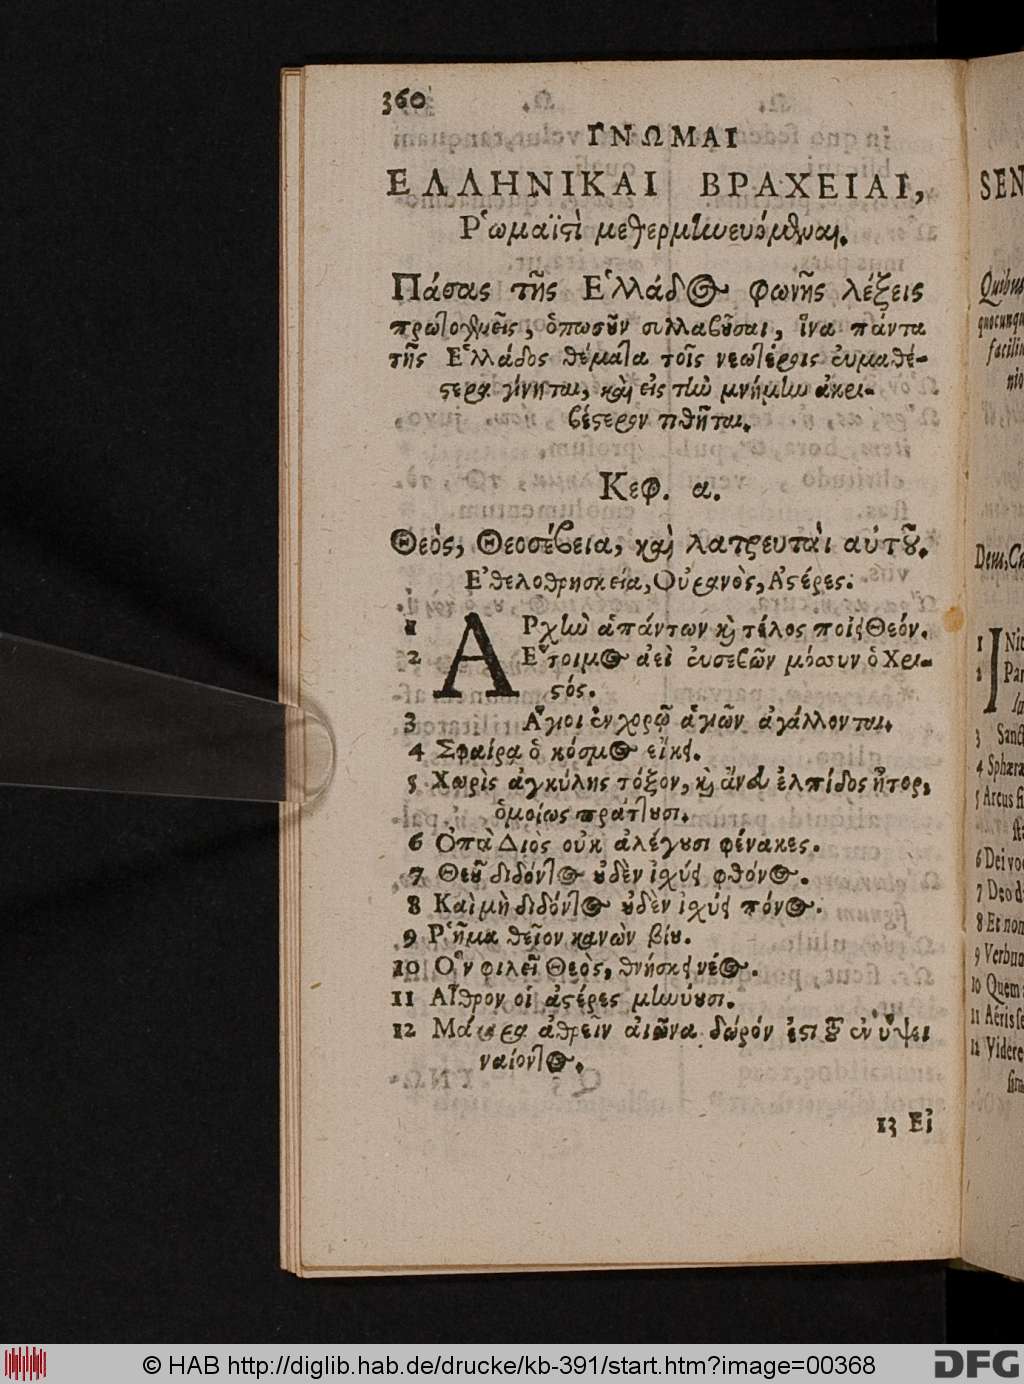 360
ΓΝΩΜΑΙ
ΕΛΛΗΝΙΚΑΙ ΒΡΑΧΕΙΑΙ,
Ρ῾ωμαϊστὶ μεθερμηνευόμεναι.
Πάσας τῆς Ε῾λλάδος φωνῆς λέξεις
πρωτογενεῖς, ὁπωσοῦν συλλαβοῦσαι, ἵνα πάντα
τῆς Ε῾λλάδος θέματα τοῖς νεωτέροις εὐμαθέ-
στερα γίνηται, καὶ εἰς τὴν μνήμην ἀκρι-
βέστερον τιθῆται.
Κεφ. α.
Θεὸς, Θεοσέβεια, καὶ λατρευταὶ αὐτοῦ.
Ε᾿θελοθρησκεία, Οὐρανὸς, Α᾿στέρες.
1 ΑΡχὴν ἁπάντων καὶ τέλος ποίει Θεόν.
2 Ε῞τοιμος ἀεὶ εὐσεβῶν μόσσυν ὁ Χρι-
στός.
3 Α῞γιοι ἐν χορῷ ἁγιῶν ἀγάλλονται.
4 Σφαίρᾳ ὁ κόσμος εἴκει.
5 Χωρὶς ἀγκύλης τόξον, καὶ ἄνευ ἐλπίδος ἦτορ,
ὁμοίως πράττουσι.
6 Ο᾿πὰ Διὸς οὐκ ἀλέγουσι φένακες.
7 Θεοῦ διδόντος οὐδὲν ἰσχύει φθόνος.
8 Καὶ μὴ διδόντος οὐδὲν ἰσχύει πόνος.
9 Ρ῾ῆμα θεῖον κανὼν βίου.
10 Ο῞ν φιλεῖ Θεὸς, θνήσκει νέος.
11 ΑΙ῎θρον οἱ ἀστέρες μηνύουσι.
12 ἀθρεῖν αἰῶνα δώρόν ἐστι τοῦ ἐν ὕψει
ναίοντος.
13 Εἰ
SEN
Quibus
quocunqu
facilin
nio
Deus, Cu
1 INit
2 Par
3 Sanct
4 Sphæra
5 Arcus si
6 Dei vo
7 Deo d
8 Et non
9 Verbu
10 Quem
11 Aëris se
12 Videre
© HAB http://diglib.hab.de/drucke/kb-391/start.htm?image=00368
DFG